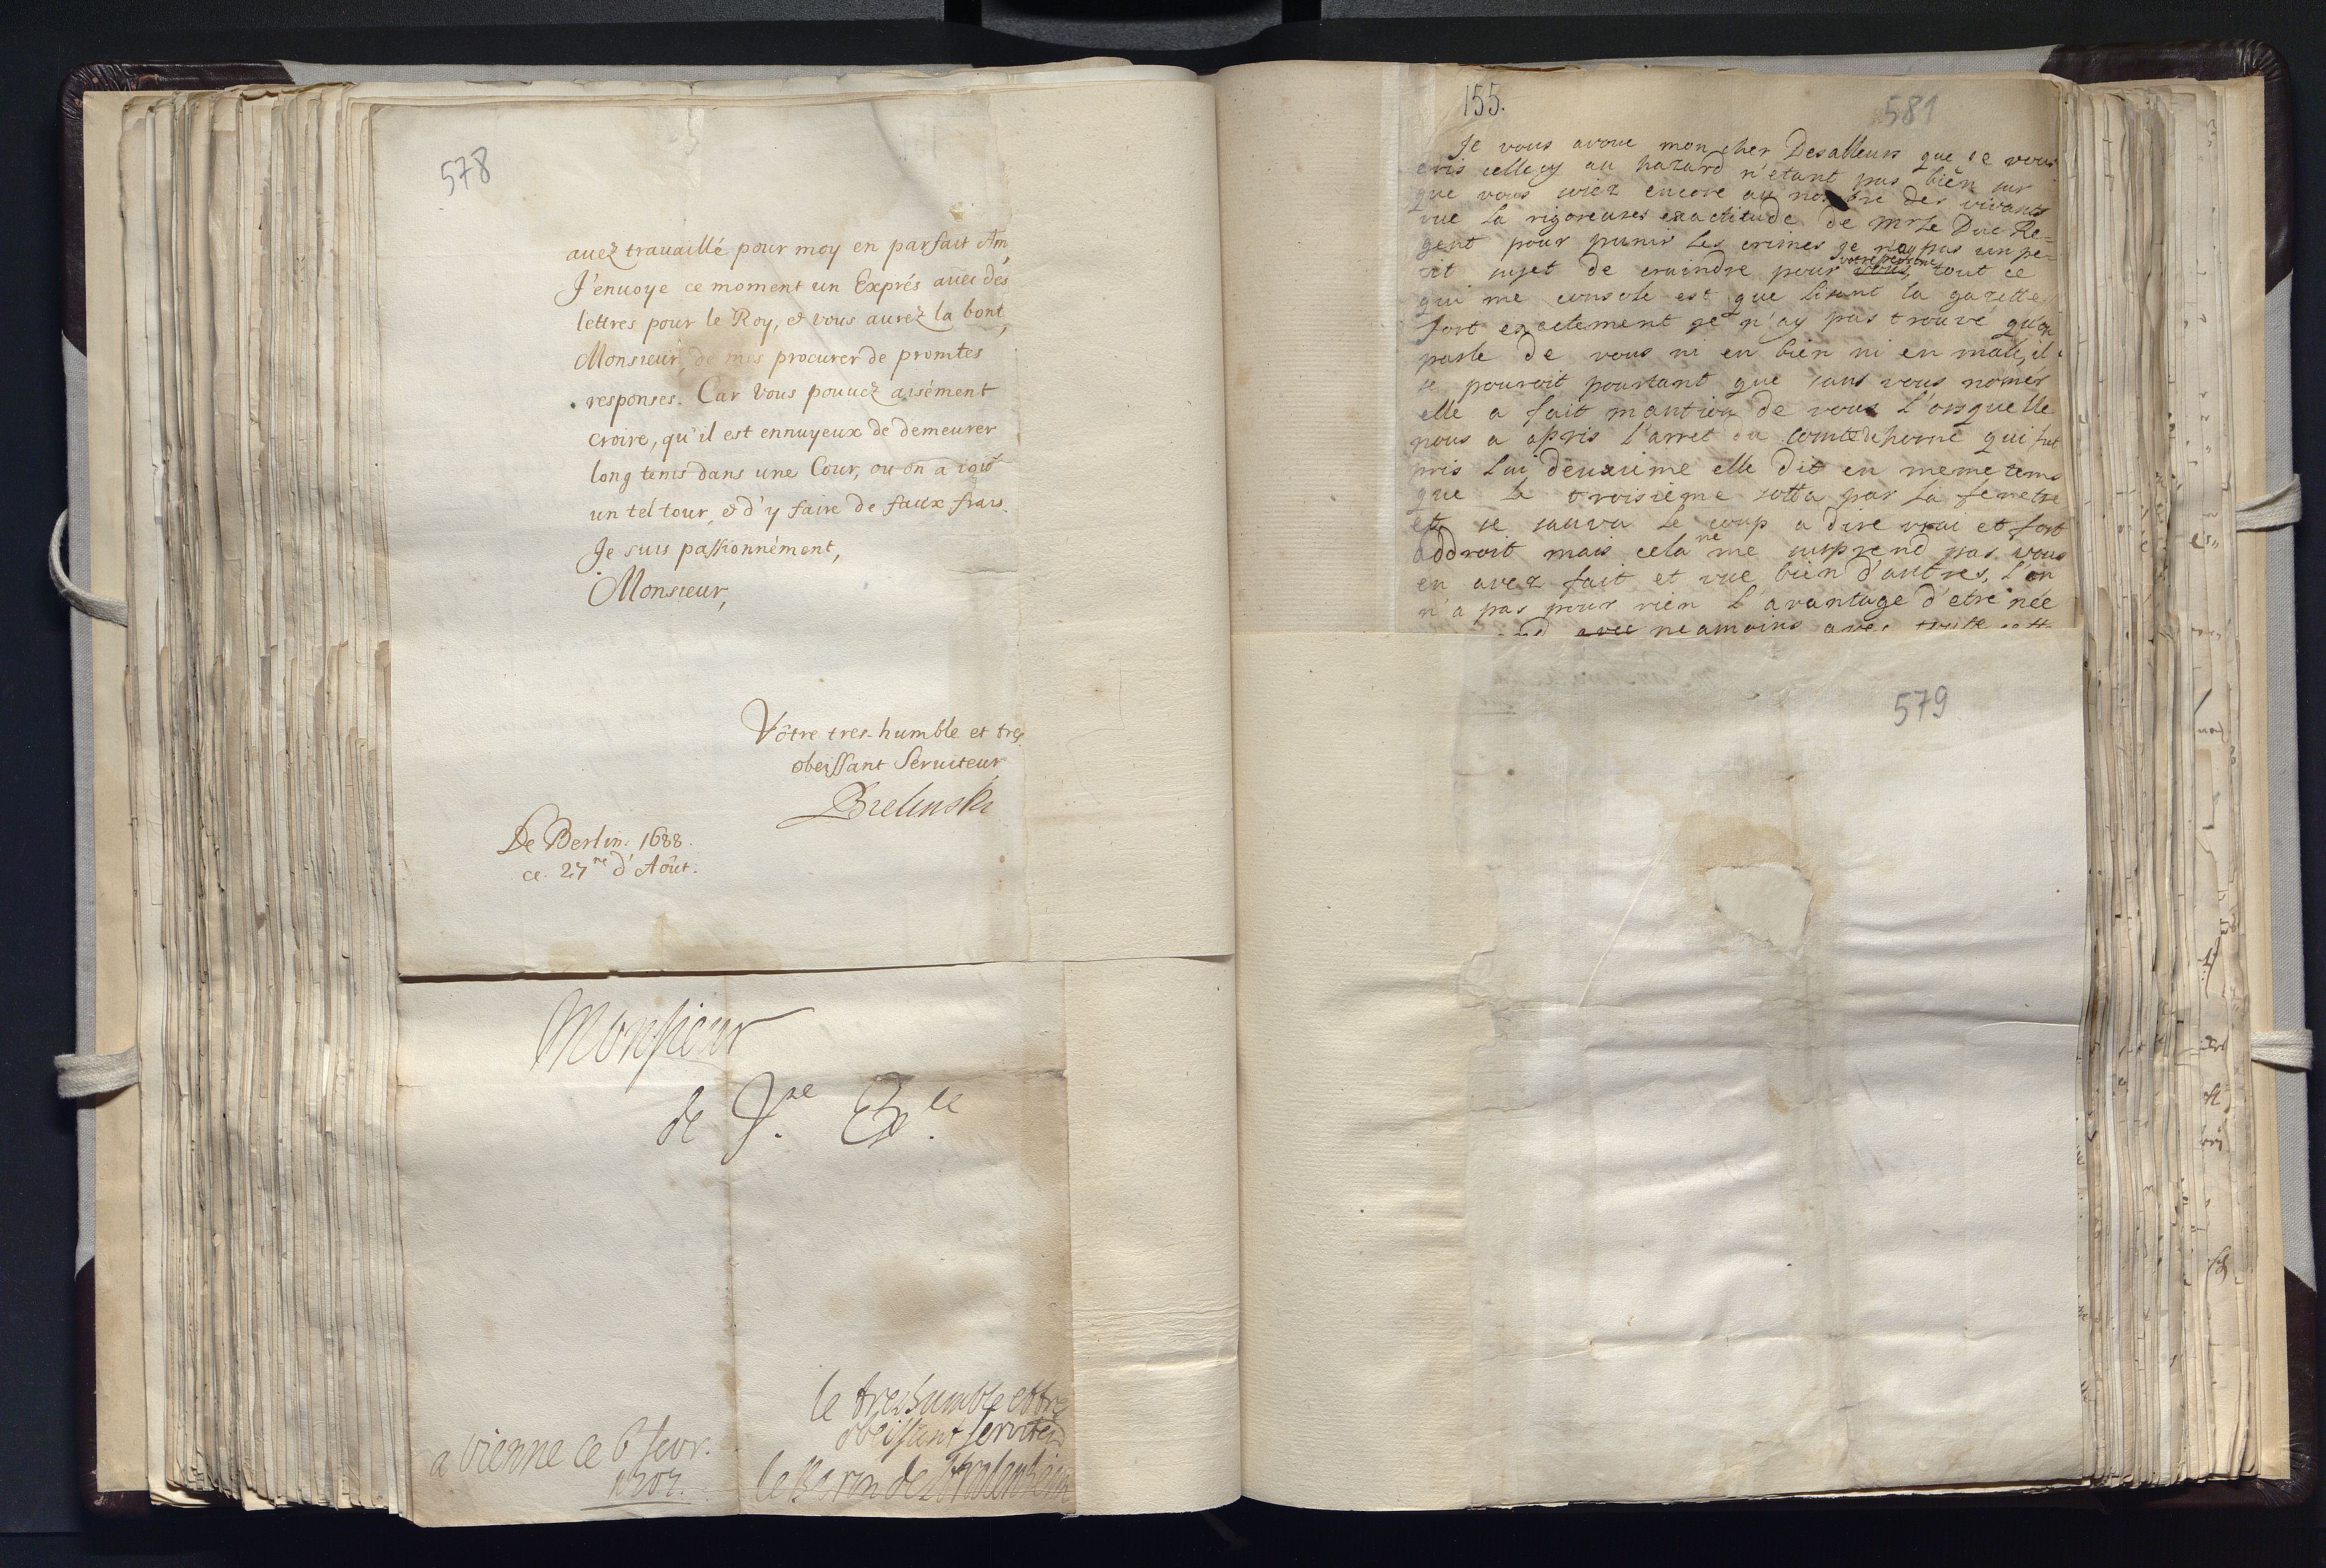 578
auez travaillé pour moy en parfait Am
J'enuoye ce moment un Exprés auec des
lettres pour le Roy, et vous aurez la bont
Monsieur, de mes procurer de promtes
responses. Car vous pouuez aisément
croire, qu'il est ennuyeux de demeurer
long tems dans une Cour, ou on a ioüé
un tel tour, et d'y faire de faux frais.
Je suis passionnément,
Monsieur,
Vôtre tres-humble et tres
obeissant Seruiteur
Bielinski
De Berlin. 1688.
ce. 27me d'Aôut.
Monsieur
de V.re Ex.le
le tres humble et tre
obeissant servite
a vienne ce 6 fevr.
1707.
le Baron de Stralenheim
155.
581
Je vous avoue mon cher Desalleurs que je vous
cris celle cy au hazard n'étant pas bien sur
que vous soiez encore au nombre des vivants
vue la rigoreuses exactitude de Mr Le Duc Re=
gent pour punir les crimes je n'ay pas un pe=
tit sujet de craindre pour votre persone, tout ce
qui me console est que lisant la gazette
fort exactement je n'ay pas trouvé qu'on
parle de vous ni en bien ni en male, il
se pouroit pourtant que sans vous nomer
elle a fait mantion de vous l'orsquelle
nous a apris l'arret du comte de horne qui fut
pris lui deuxieme elle dit en meme tems
que le troisième sotta par la fenetre
et se sauva le coup a dire vrai et fort
addroit mais cela ne me surprend pas vous
en avez fait et vue bien d'autres, l'on
n'a pas pour rien l'avantage d'etre née
avec neamoins avec toutte cette
579